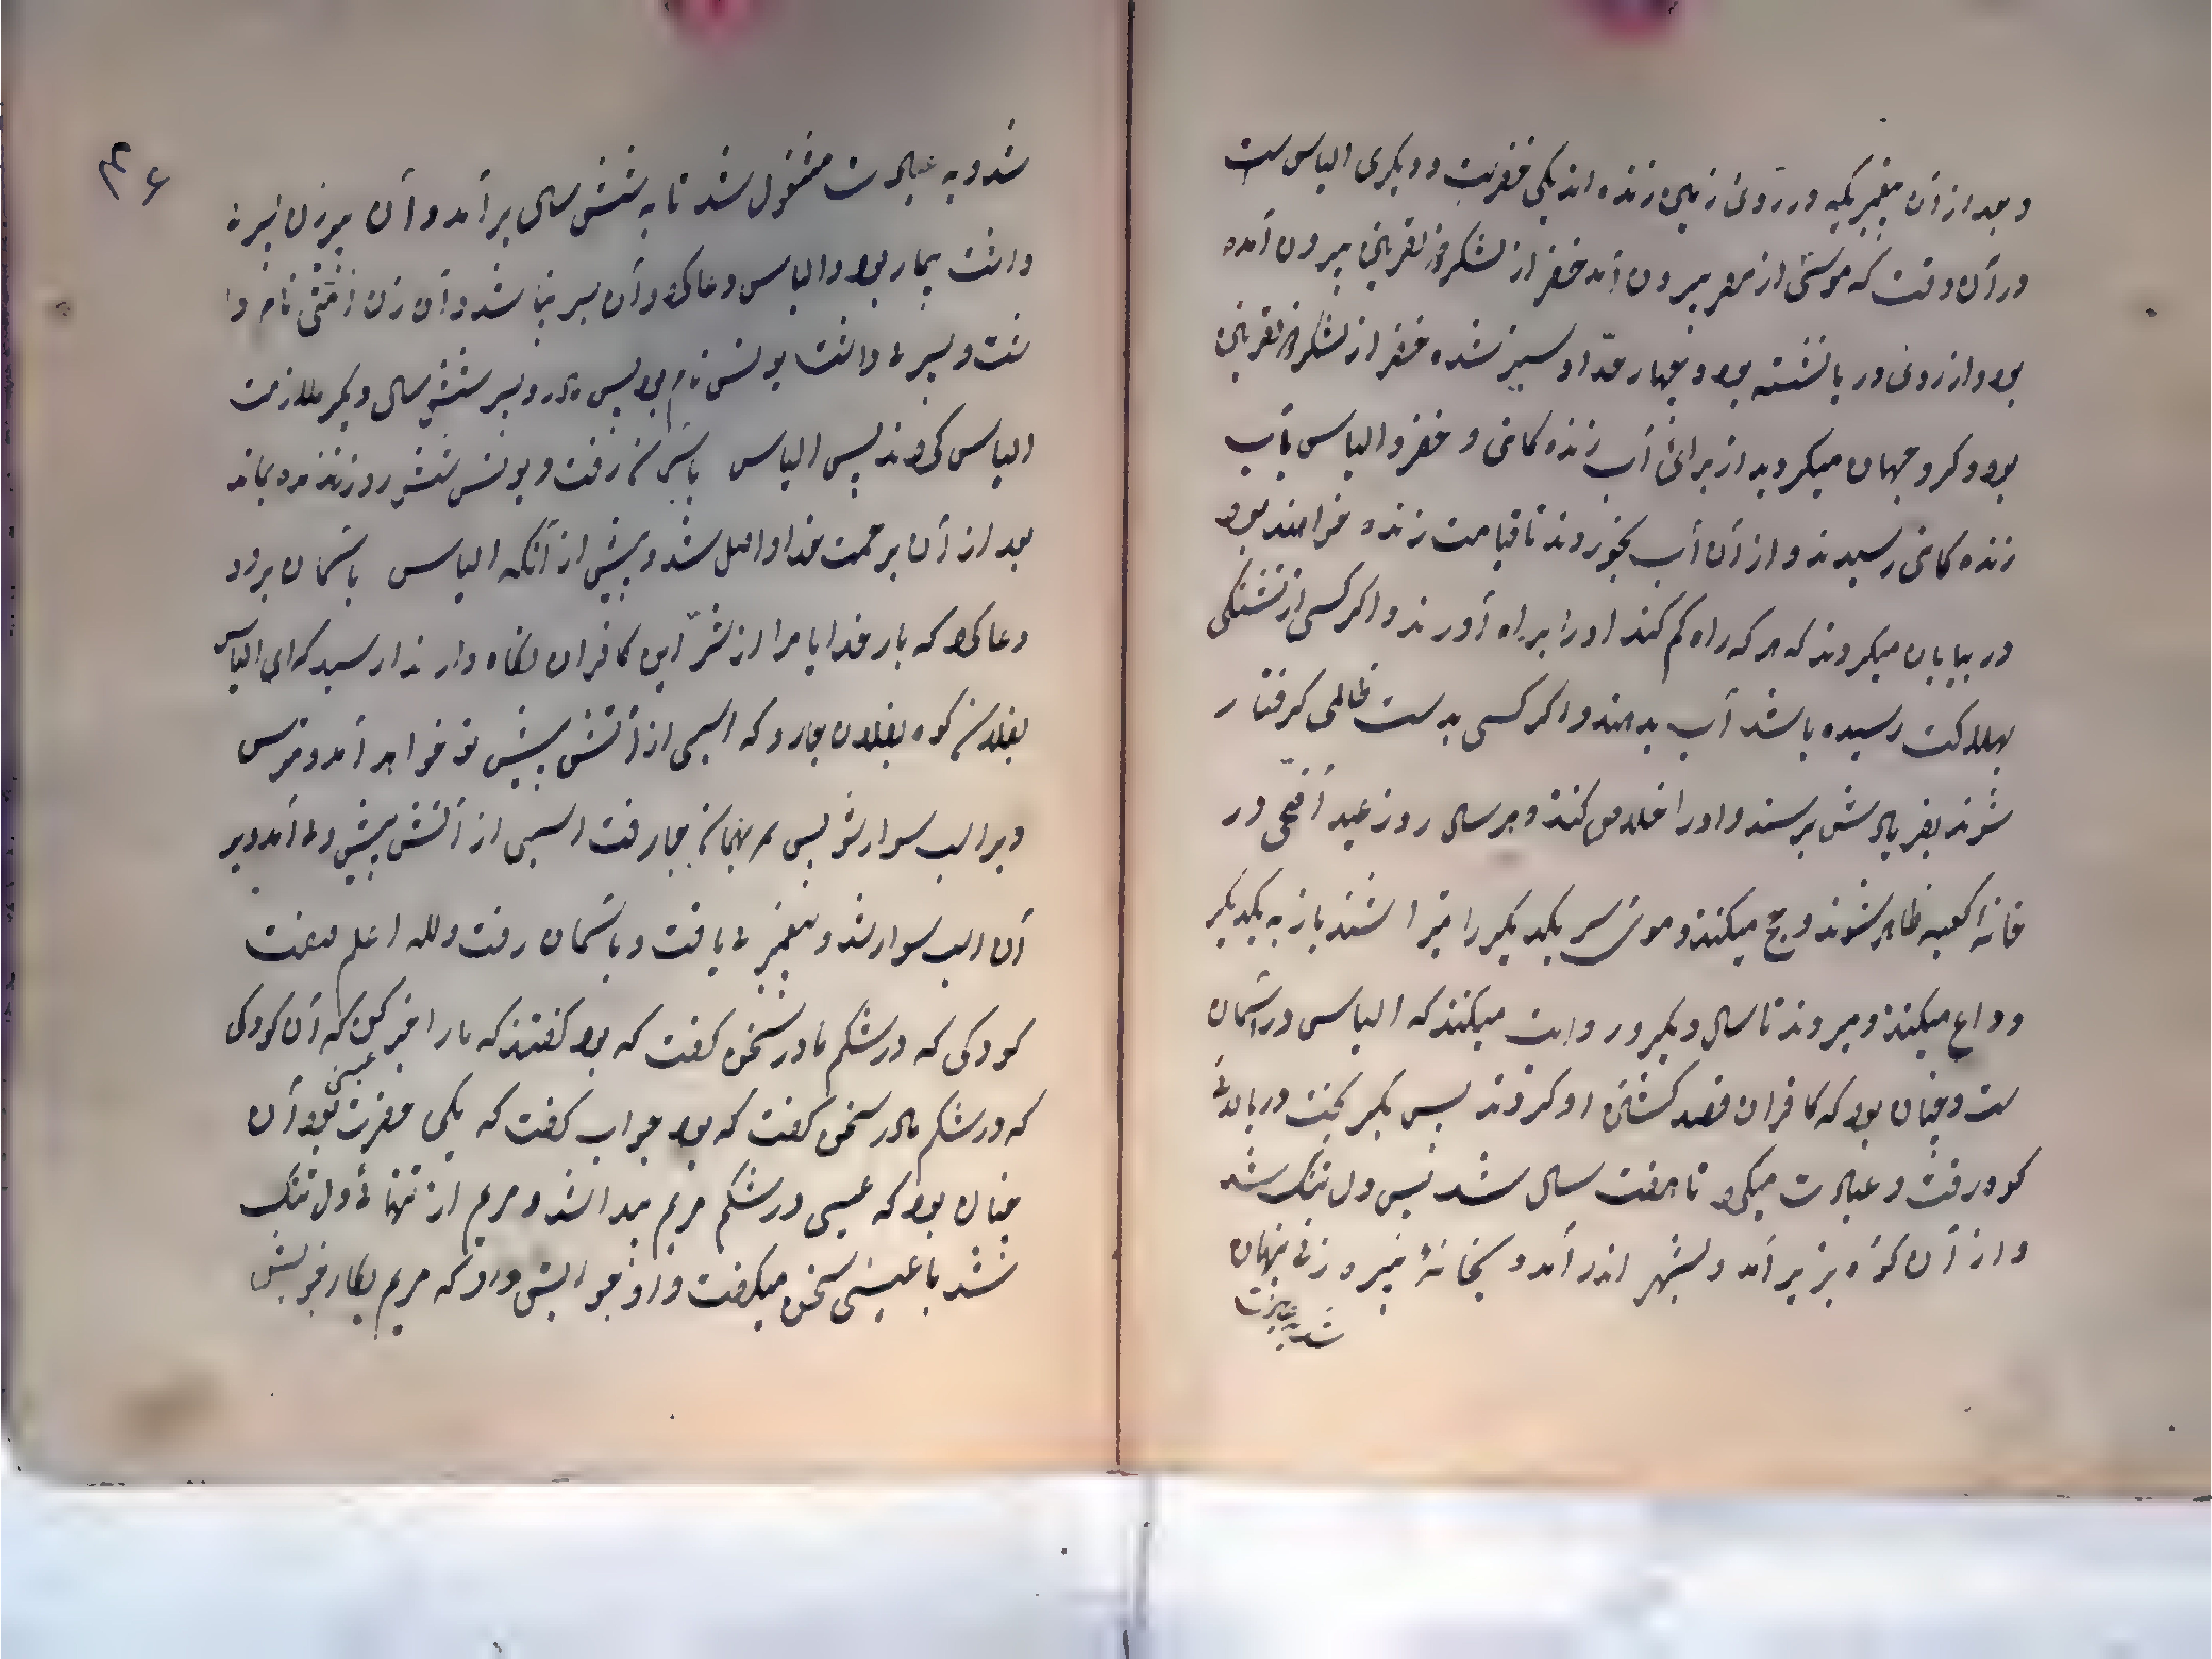 و بعد از آن پیغمبریکه در روی زمین زنده اند یکی خضرست و دیگری الیاس ست
در آن وقت که موسی از مصر بیرون آمد خضر از لشکر ذوالقرنین بیرون آمده
بود و از روی دریا نشسته بود و چهار حد او سبز شده خضر از لشکر ذوالقرنین
بود و کرد جهان میکردید از برای آب زنده کانی و خضر و الیاس بآب
زنده کانی رسیدند و از آن آب بخوردند تا قیامت زنده خواهند بود
در بیابان میکردند که هر که راه کم کند او را براه آورند و اکر کسی از تشنکی
بهلاکت رسیده باشد آب بدهند و اکر کسی بدست ظالمی کرفتار
شوند بفریادش برسند و او را خلاص کنند و هر سال روز عید اضحی در
خانه کعبه ظاهر شوند و حج میکنند و موی سر یکدیکر را میتراشند باز به یکدیکر
وداع میکنند و میروند تا سال دیکر و روایت میکنند که الیاس در آسمان
ست و چنان بود که کافران قصد کشتن او کردند پس بکریخت در بالای
کوه رفت و عبادت میکرد تا هفت سال شد پس دل تنک شد
و از آن کوه بزیر آمد و بشهر اندر آمد و بخانهٔ پیره زنی پنهان
شد
۴۶
شد و به عبادت مشغول شد تا به شش سال برآمد و آن پیرزن پسری
داشت بیمار بود و الیاس دعا کرد و آن پسر بینا شد و آن زن نام
و پسری داشت یونس نام بود پس مادر و پسر شش سال دیکر ملازمت
الیاس کردند پس الیاس رفت و یونس شش روز زنده بماند
بعد از آن برحمت خدا واصل شد و پیش از آنکه الیاس باسمان برود
دعا کرد که بار خدایا مرا از شر این کافران نکاه دار ندا رسید که ای الیاس
بفلان کوه بفلان جا رو که اسبی از آتش پیش تو خواهد آمد و مترس
و بر اسب سوار شو پس جا رفت اسبی از آتش پیش وی آمد و بر
آن اسب سوار شد و پیغمبری یافت و باسمان رفت ولله اعلم
کودکی که در شکم مادر سخن کفت که بود کفتند که ما را خبر کن که آن کودکی
که در شکم مادر سخن کفت که بود جواب کفت که یکی حضرت عیسی بود آن
چنان بود که عیسی در شکم مریم پیدا شد و مریم از تنهائی دل تنک
شد با عیسی سخن میکفت و او جوابش داد که مریم بکار خویش